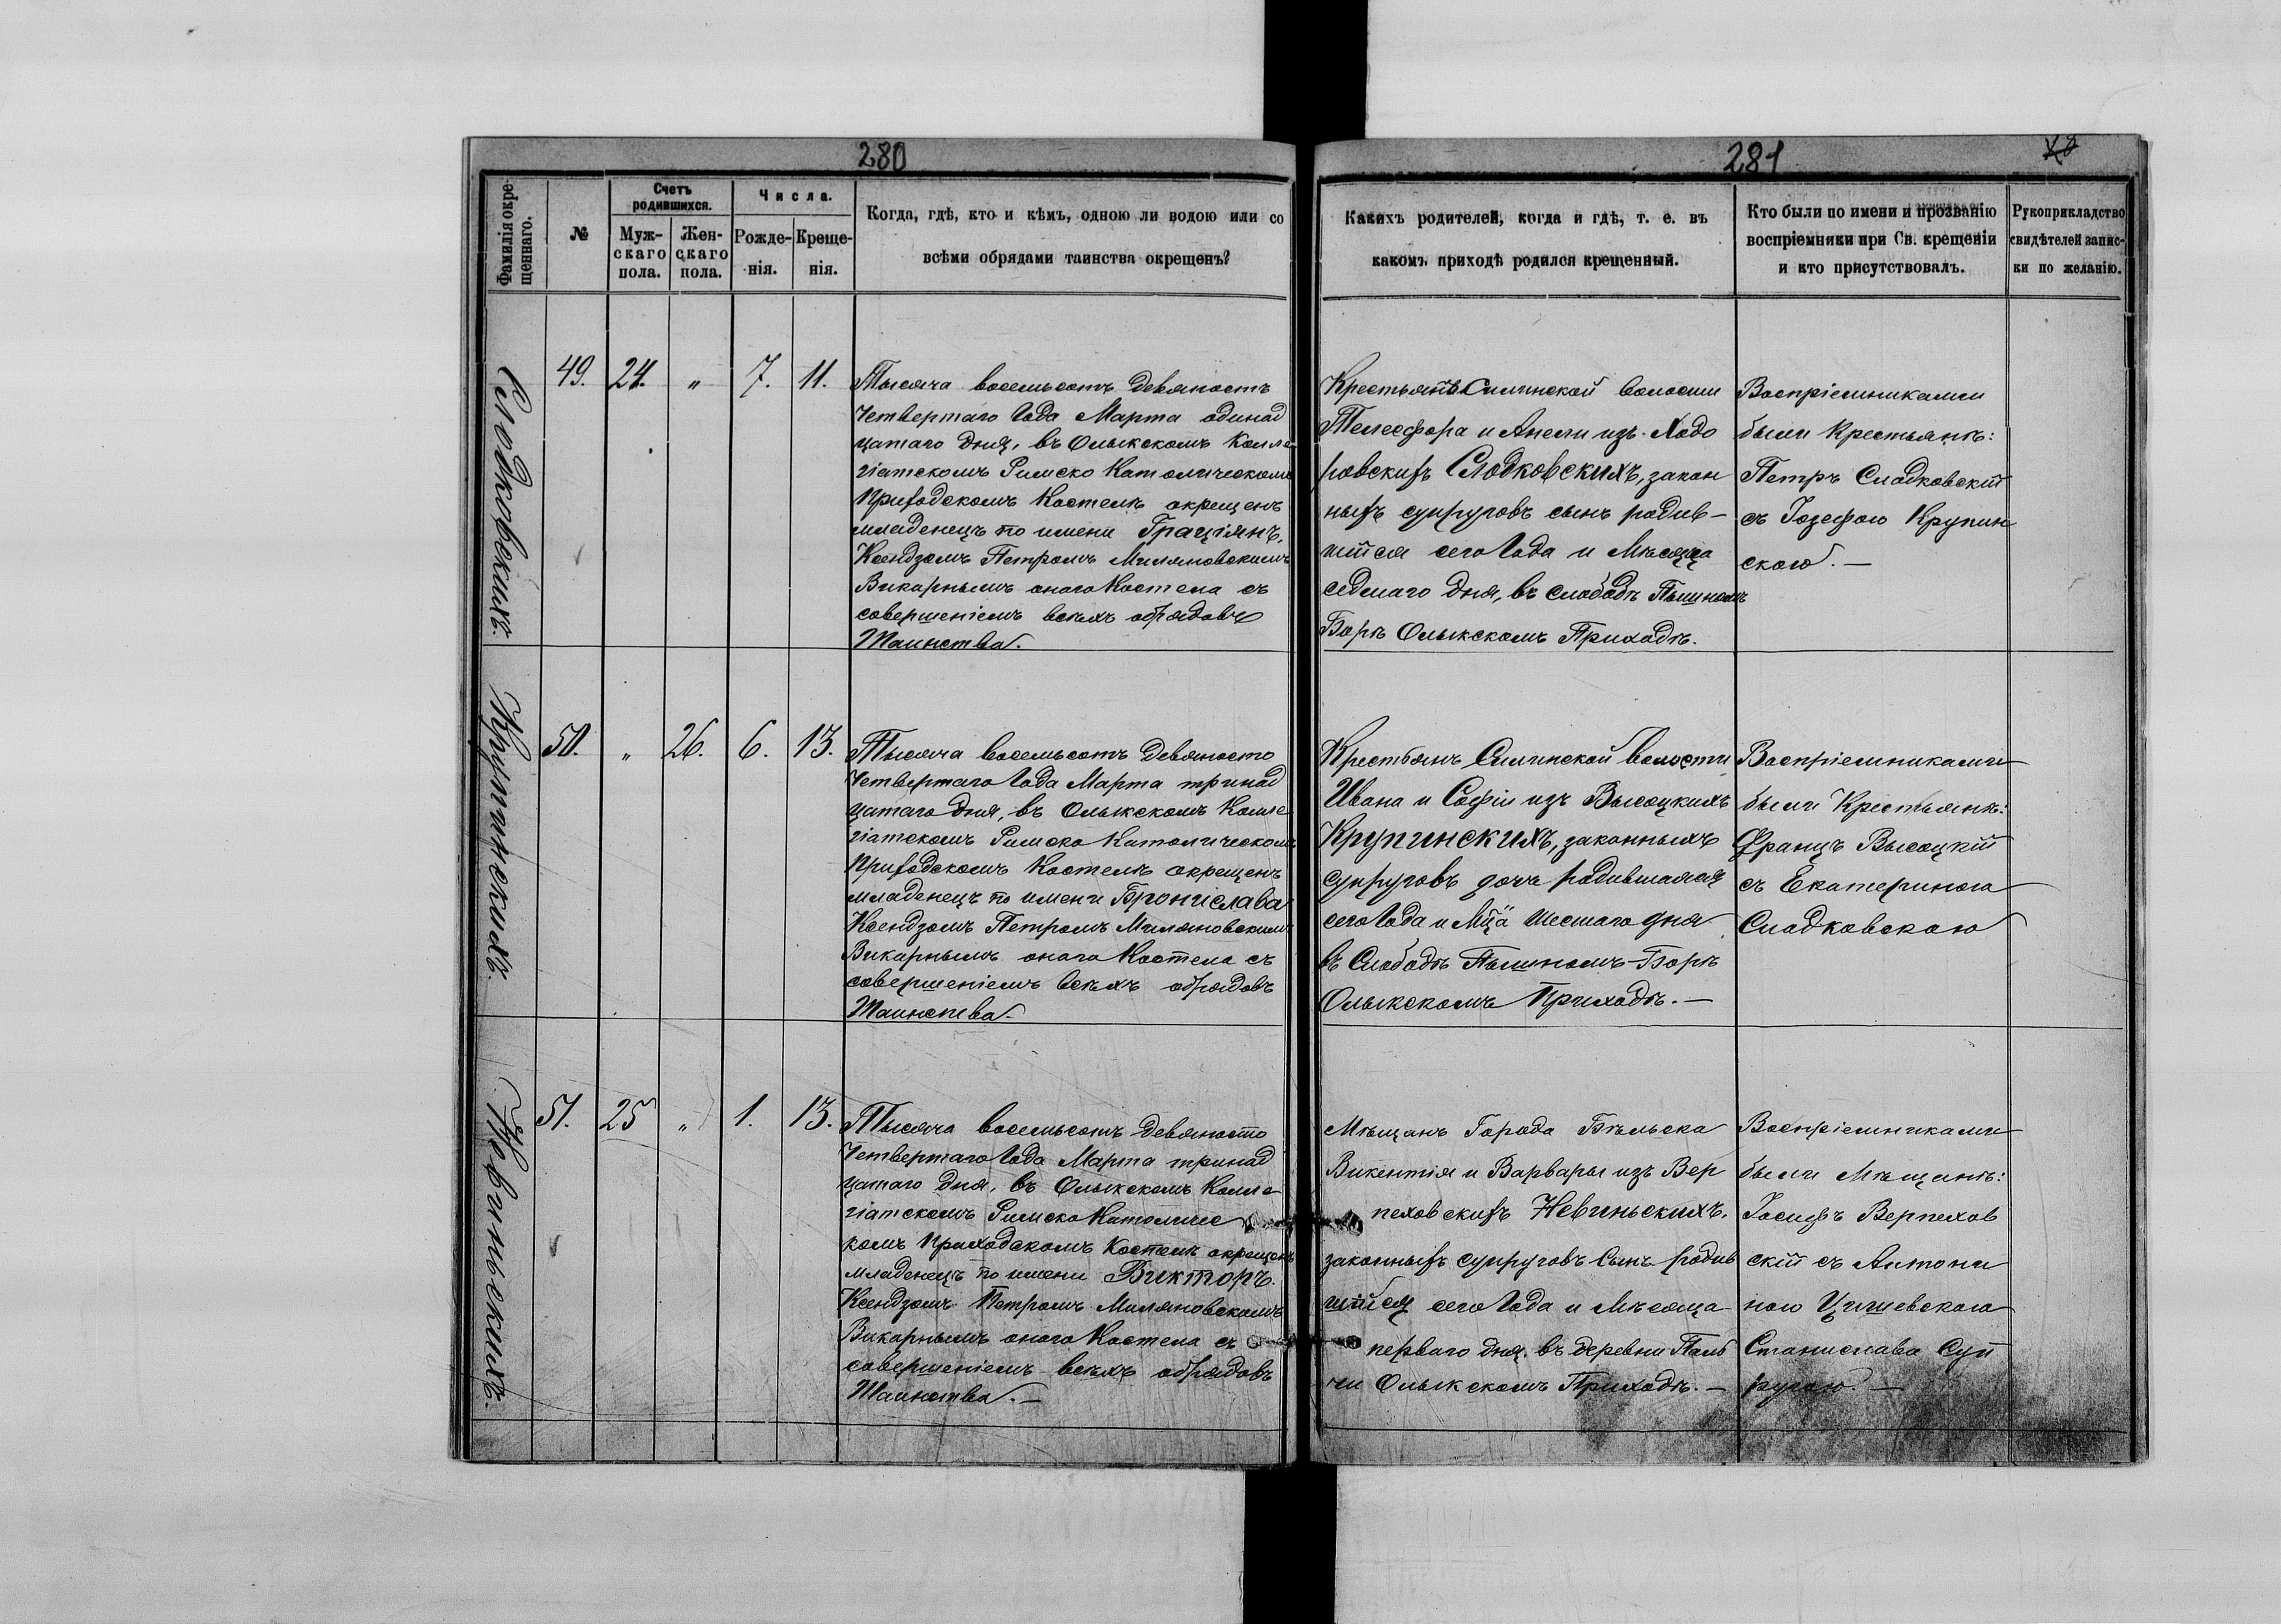 280
Фамилія окре-
щеннаго.
№
Счетъ
родившихся.
Муж-
скаго
пола.
Жен-
скаго
пола.
Числа.
Рожде-
нія.
Креще-
нія.
Когда, гдѣ, кто и кѣмъ, одною ли водою или со
всѣми обрядами таинства окрещенъ?
281
Какихъ родителей, когда и гдѣ, т. е. въ
какомъ приходѣ родился крещенный.
Кто были по имени и прозванію
воспріемники при Св. крещеніи
и кто присутствовалъ.
Рукоприкладство
свидѣтелей запис-
ки по желанію.
Слодковскихъ.
49. 24. " 7. 11.
Тысяча восемьсотъ девяностъ
Четвертаго Года Марта одинад
цатаго дня, въ Олыкскомъ Колле
гіатскомъ Римско Католическомъ
Приходскомъ Костелѣ окрещенъ
младенецъ по имени Граціянъ.
Ксендзомъ Петромъ Миляновскимъ
Викарнымъ онаго Костела съ
совершеніемъ всѣхъ обрядовъ
Таинства.
Крестьянъ Силинской волости
Телесфора и Анели изъ Ходо
ровскихъ Слодковскихъ, закон
ныхъ супруговъ сынъ родив-
шійся сего Года и Мѣсяца
седмаго дня, въ слободѣ Пышномъ
Борѣ Олыкскомъ Приходѣ.
Воспріемниками
были Крестьянѣ:
Петръ Сладковскій
съ Іозефою Крупин
скою. —
Крупинскихъ.
50. " 26. 6. 13.
Тысяча восемьсотъ девяносто
Четвертаго Года Марта тринад
цатаго дня, въ Олыкскомъ Колле
гіатскомъ Римско Католическомъ
Приходскомъ Костелѣ окрещенъ
младенецъ по имени Брониславa
Ксендзомъ Петромъ Миляновскимъ
Викарнымъ онаго Костела съ
совершеніемъ всѣхъ обрядовъ
Таинства.
Крестьянъ Силинской волости
Ивана и Софіи изъ Высоцкихъ
Крупинскихъ, законныхъ
супруговъ дочь родившаяся
сего Года и Мца Шестаго дня
въ Слободѣ Пышномъ-Борѣ
Олыкскомъ Приходѣ. —
Воспріемниками
были Крестьянѣ:
Францъ Высоцкій
съ Екатериною
Сладковскою
Невиньскихъ.
51. 25 " 1. 13.
Тысяча восемьсотъ девяносто
Четвертаго Года Марта тринад
цатаго дня, въ Олыкскомъ Колле
гіатскомъ Римско Католичес
комъ Приходскомъ Костелѣ окрещенъ
младенецъ по имени Викторъ.
Ксендзомъ Петромъ Миляновскимъ
Викарнымъ онаго Костела съ
совершеніемъ всѣхъ обрядовъ
Таинства. —
Мѣщанъ Города Бѣльска
Викентія и Варвары изъ Вер
пеховскихъ Невиньскихъ.
законныхъ супруговъ Сынъ родив
шійся сего Года и Мѣсяца
перваго дня. въ деревни Паль
чи Олыкскомъ Приходѣ. —
Воспріемниками
были Мѣщанѣ:
Іосифъ Верпехов
скій съ Антони
ною Цишевскою
Станислава Суп
ругою. —